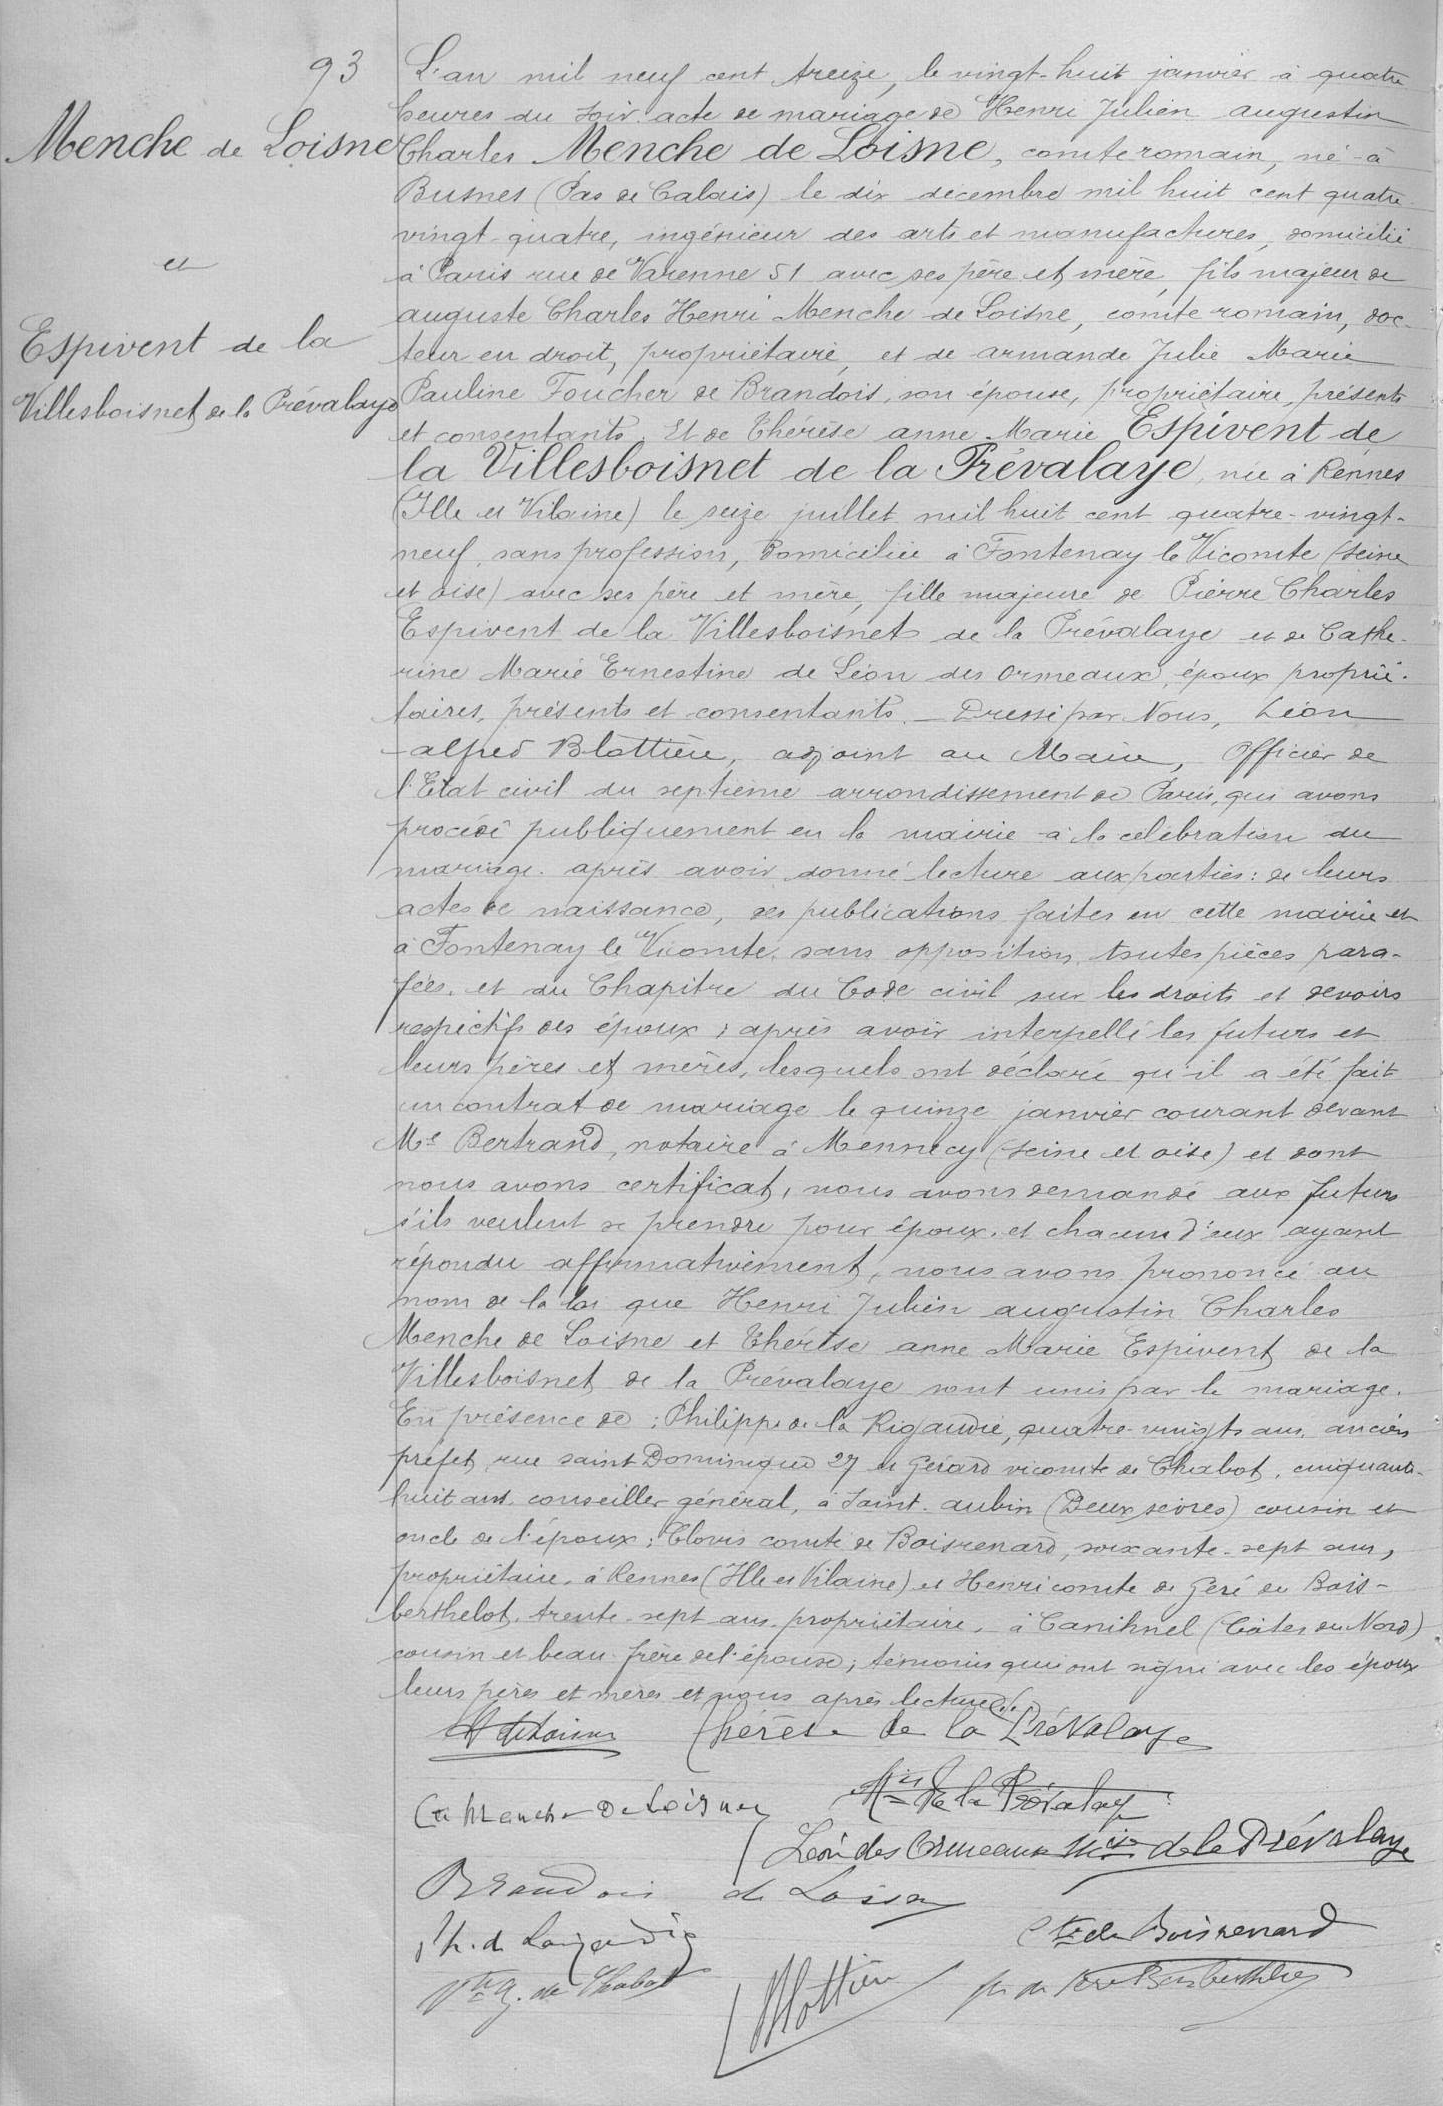 93
Menche de Loisne
et
Espivent de la
Villesboisnet de la Prévalaye
L'an mil neuf cent treize, le vingt-huit janvier à quatre
heures du soir. acte de mariage de Henri Julien augustin
Charles Menche de Loisne, comte romain, né à
Busnes (Pas de Calais) le dix décembre mil huit cent quatre
vingt-quatre, ingénieur des arts et manufactures, domicilié
à Paris rue de Varenne 51 avec ses père et mère, fils majeur de
auguste Charles Henri Menche de Loisne, comte romain, doc-
teur en droit, propriétaire, et de armande Julie Marie
Pauline Foucher de Brandois, son épouse, propriétaire, présents
et consentants. Et de Thérèse anne Marie Espivent de
la Villesboisnet de la Prévalaye, née à Rennes
(Ille et Vilaine) le seize juillet mil huit cent quatre-vingt-
neuf, sans profession, domiciliée à Fontenay le Vicomte (seine
et oise) avec ses père et mère, fille majeure de Pierre Charles
Espivent de la Villesboisnet de la Prévalaye et de Cathe-
rine Marie Ernestine de Léon des Ormeaux, époux proprié-
taires, présents et consentants. — Dressé par Nous, Léon
alfred Blottière, adjoint au Maire, Officier de
l'Etat civil du septième arrondissement de Paris, qui avons
procédé publiquement en la mairie à la célébration du
mariage. après avoir donné lecture aux parties: de leurs
actes de naissance, des publications faites en cette mairie et
à Fontenay le Vicomte, sans opposition, toutes pièces para-
fées, et du Chapitre du Code civil sur les droits et devoirs
respectifs des époux; après avoir interpellé les futurs et
leurs pères et mères, lesquels ont déclaré qu'il a été fait
un contrat de mariage le quinze janvier courant devant
Me Bertrand, notaire à Mennecy (seine et oise) et dont
nous avons certificat, nous avons demandé aux futurs
s'ils veulent se prendre pour époux, et chacun d'eux ayant
répondu affirmativement, nous avons prononcé au
nom de la loi que Henri Julien augustin Charles
Menche de Loisne et Thérèse anne Marie Espivent de la
Villesboisnet de la Prévalaye sont unis par le mariage.
En présence de: Philippe de la Rigaudie, quatre-vingts ans, ancien
préfet, rue saint Dominique 27 et Gérard vicomte de Chabot, cinquante-
huit ans, conseiller général, à Saint-aubin (Deux sèvres) cousin et
oncle de l'époux; Clovis comte de Boisrenard, soixante-sept ans,
propriétaire, à Rennes (Ille et Vilaine) et Henri comte de Geré de Bois-
berthelot, trente-sept ans, propriétaire, à Canihuel (Côtes du Nord)
cousin et beau-frère de l'épouse; témoins qui ont signé avec les époux
leurs pères et mères et nous après lecture
H de Loisne Thérèse de la Prévalaye
Cte Menche De Loisne Mis de la Prévalaye
Léon des Ormeaux Mise de la Prévalaye
Brandois de Loisne
Ph. de Larigaudie Cte de Boisrenard
Vte G. de Chabot Blottière